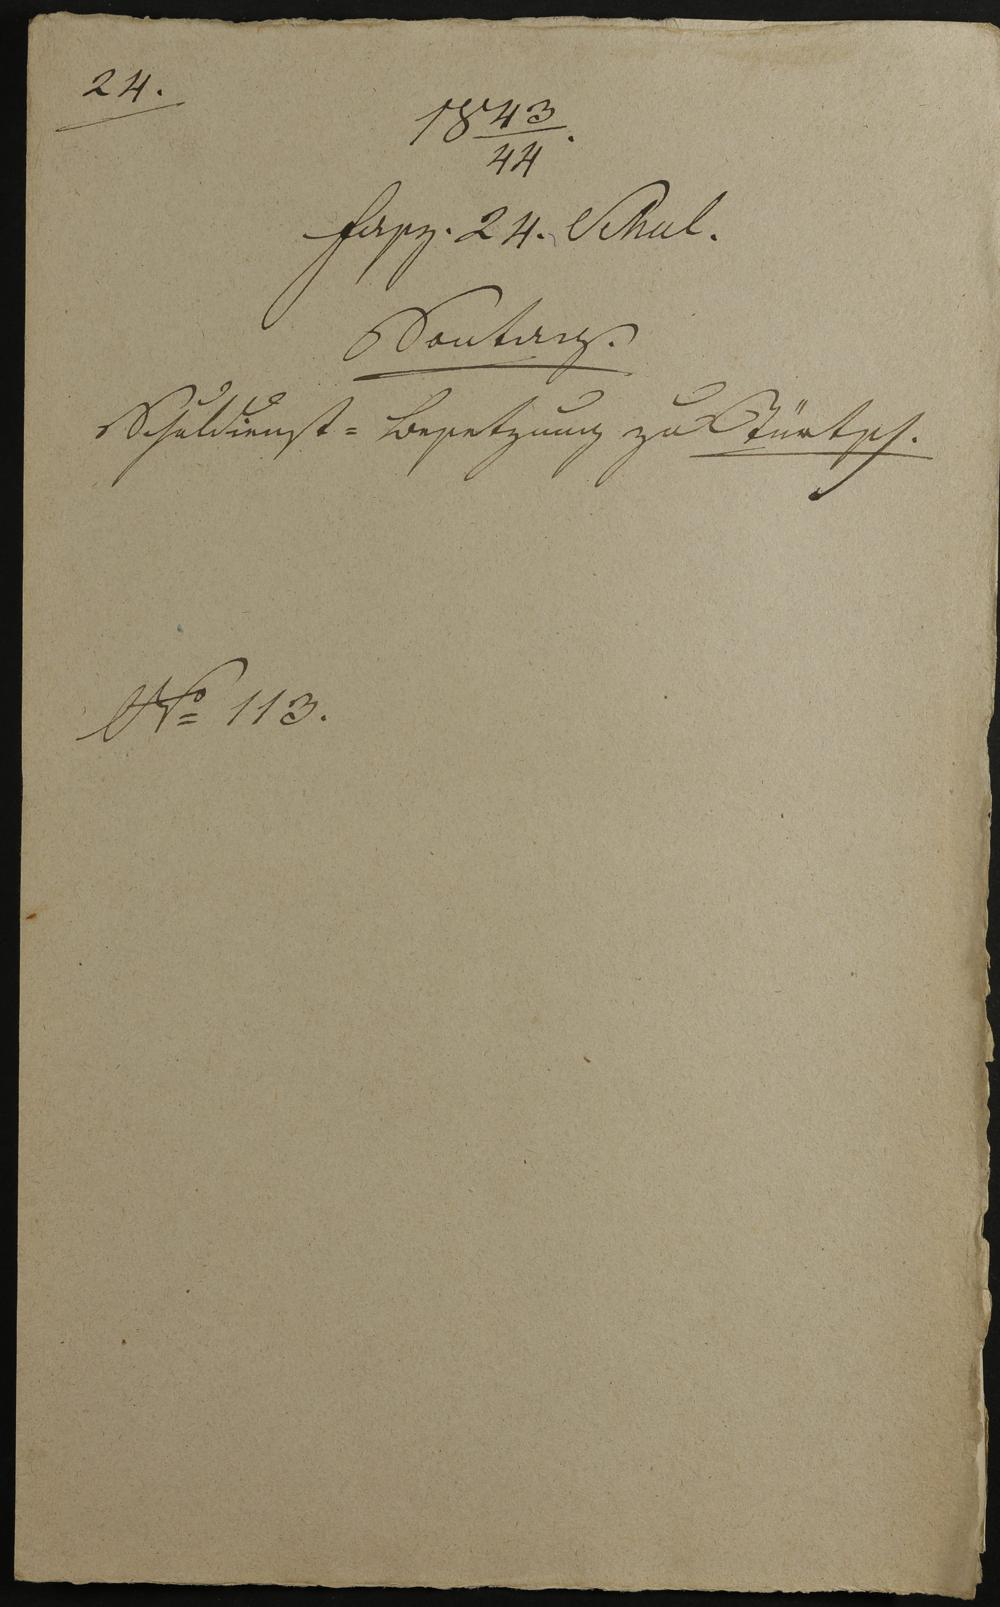 24.
1843/44.
Fasz. 24. Schul.
Sontag.
Schuldienst=besetzung zu Türtsch.
No 113.